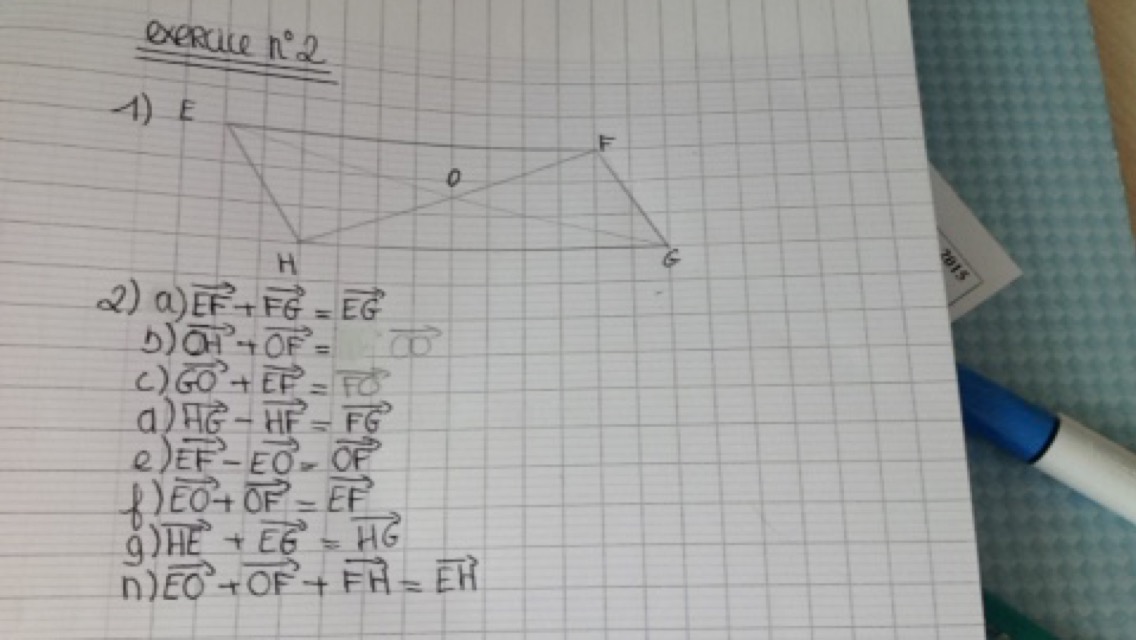 exercice n°2
1) E
F
O
H
G
2) a) EF + FG = EG
b) OH + OF = OO
c) GO + EF = FO
d) HG - HF = FG
e) EF - EO = OF
f) EO + OF = EF
g) HE + EG = HG
h) EO + OF + FH = EH
2015